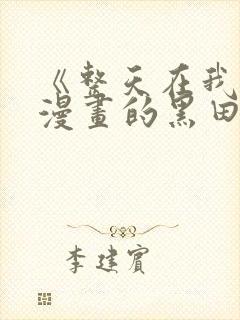 《整天在我
漫畫的黑田
李建賓